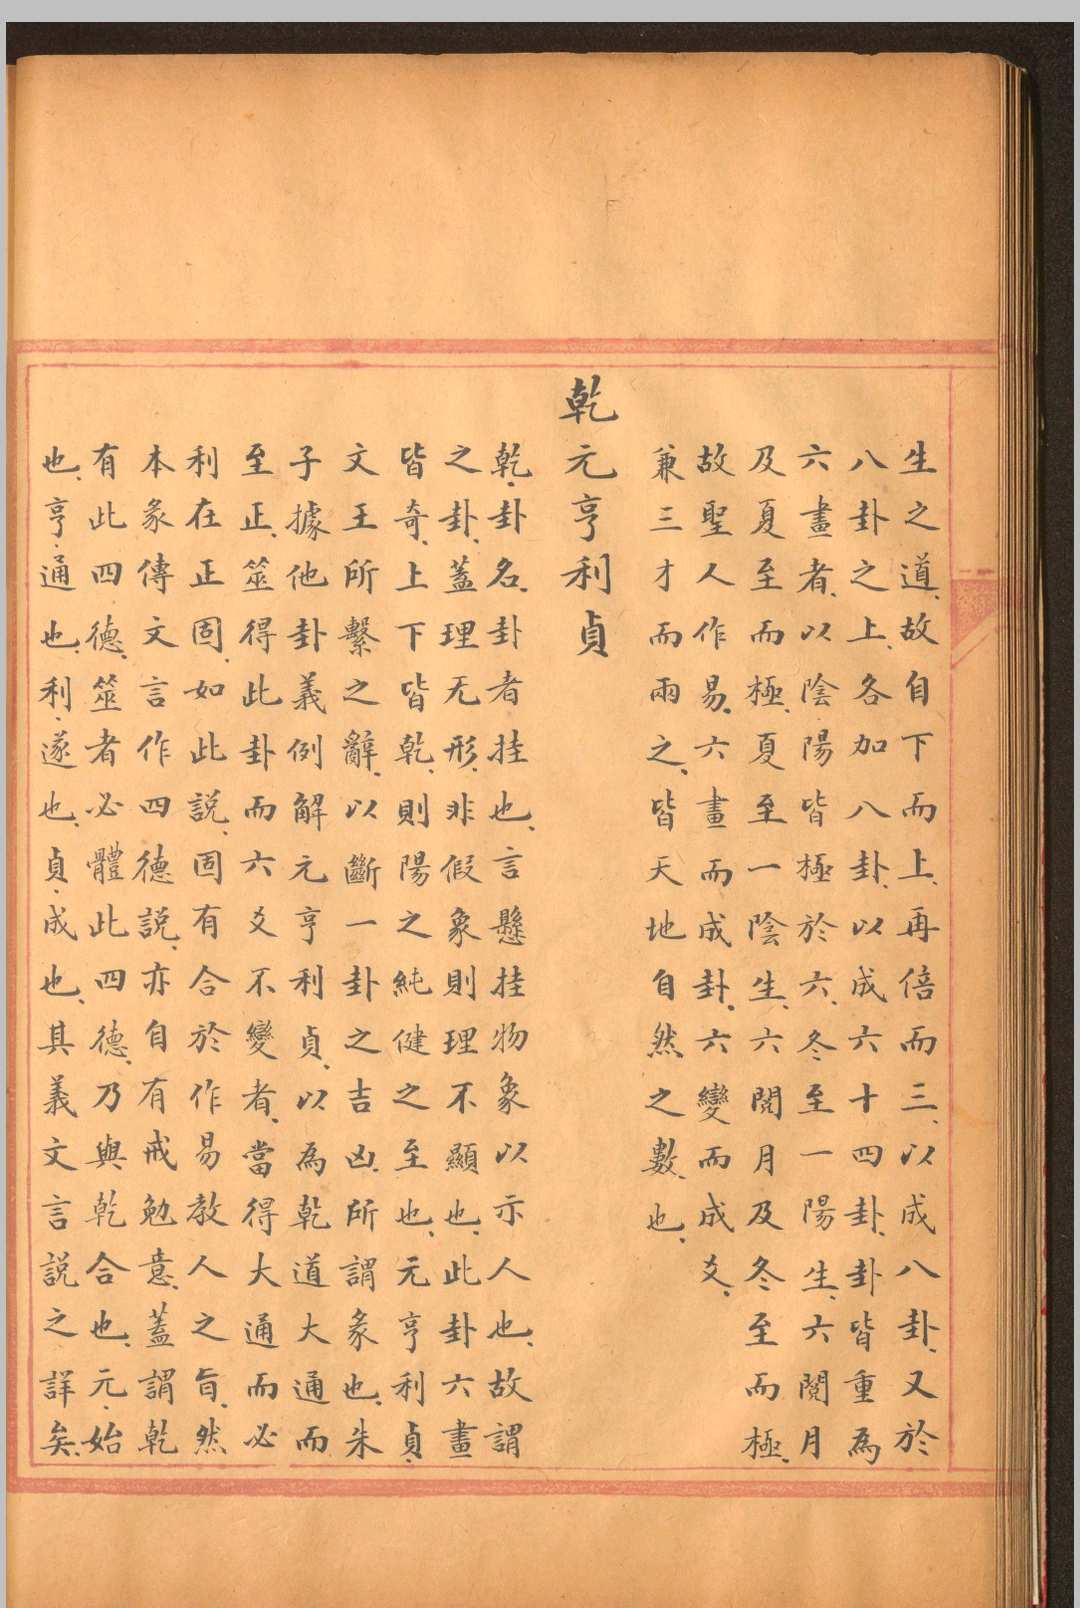 生之道、故自下而上、再倍而三、以成八卦、又於
八卦之上、各加八卦、以成六十四卦、卦皆重為
六畫者、以陰陽皆極於六、冬至一陽生、六閱月
及夏至而極、夏至一陰生、六閱月及冬至而極、
故聖人作易、六畫而成卦、六變而成爻、
兼三才而兩之、皆天地自然之數也、
乾元亨利貞
乾、卦名、卦者挂也、言懸挂物象以示人也、故謂
之卦、蓋理无形、非假象則理不顯也、此卦六畫
皆奇、上下皆乾、則陽之純健之至也、元亨利貞、
文王所繫之辭、以斷一卦之吉凶、所謂彖也、朱
子據他卦義例解元亨利貞、以為乾道大通而
至正、筮得此卦而六爻不變者、當得大通而必
利在正固、如此說、固有合於作易教人之旨、然
本彖傳文言作四德說、亦自有戒勉意、蓋謂乾
有此四德、筮者必體此四德、乃與乾合也、元、始
也、亨、通也、利、遂也、貞、成也、其義文言說之詳矣、